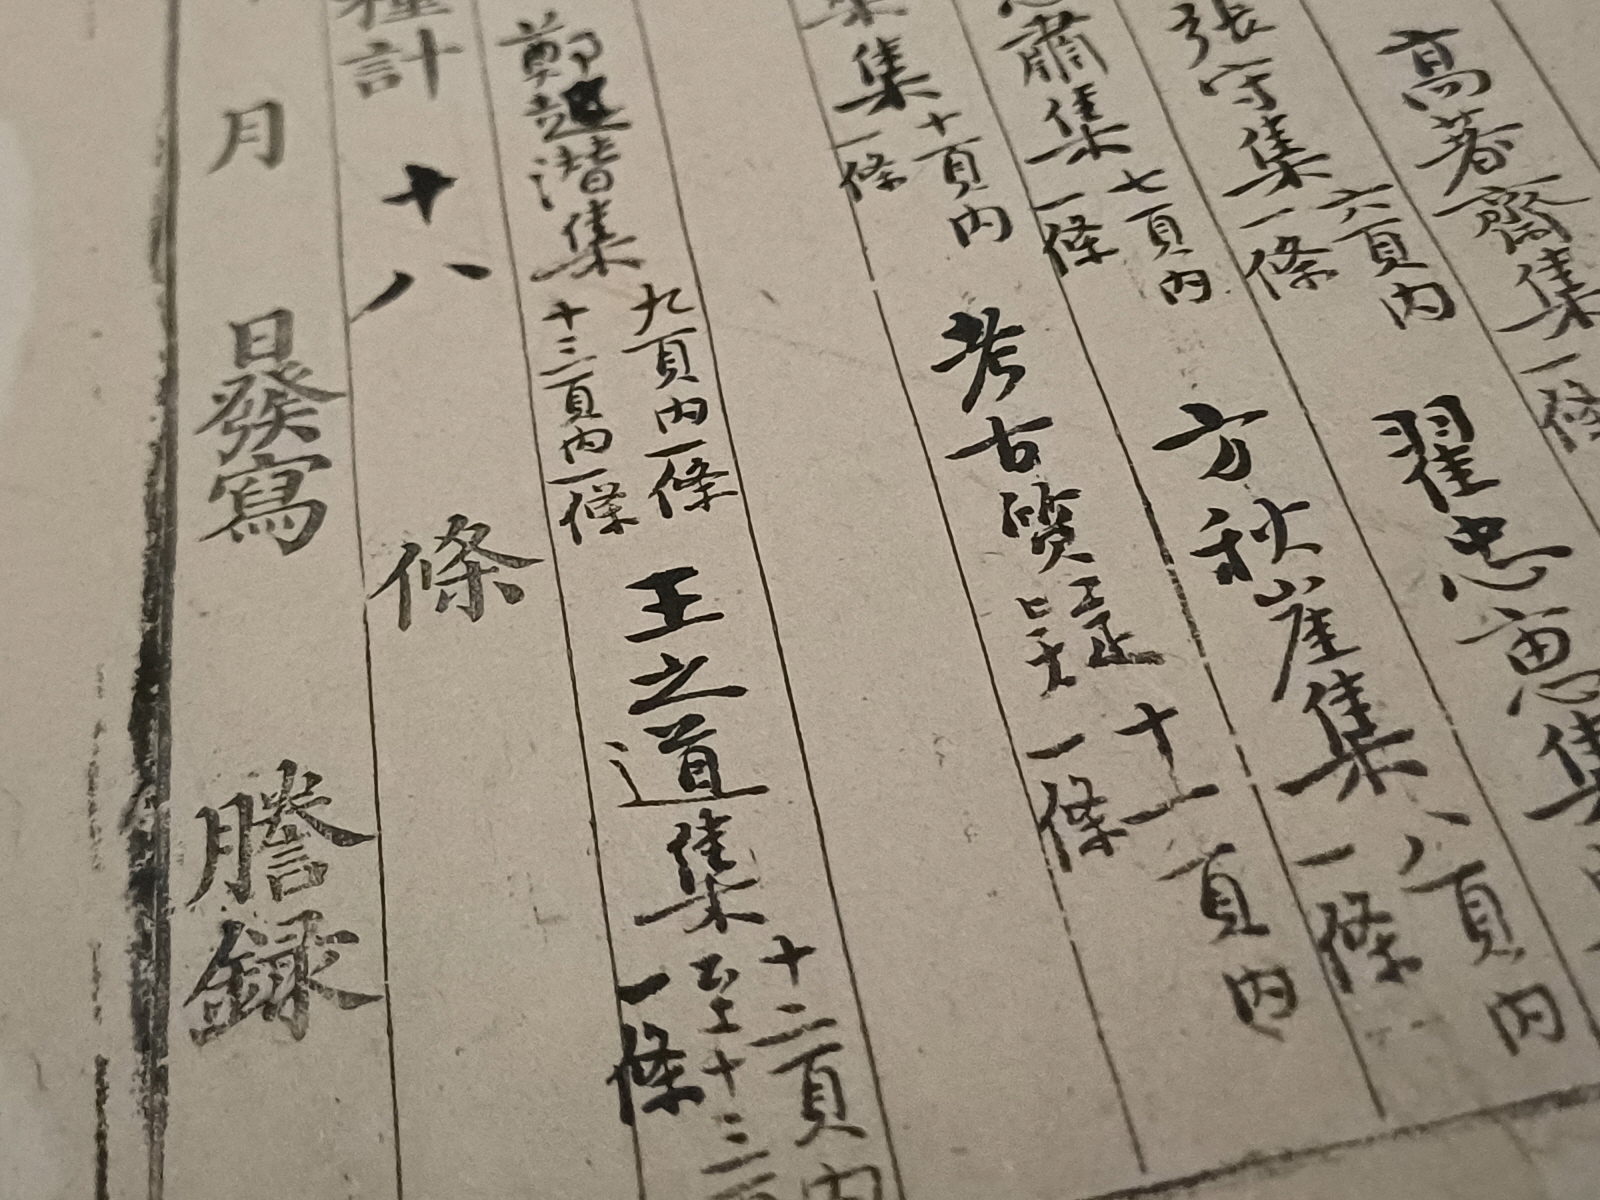 高著齋集一條
張守集六頁內一條
翟忠惠集
肅集七頁內一條
方秋崖集八頁內一條
集十頁內一條
考古質疑十一頁內一條
鄭
潛集九頁內一條十三頁內一條
王之道集十二頁內至十三一條
計十八條
月
日發寫
謄録